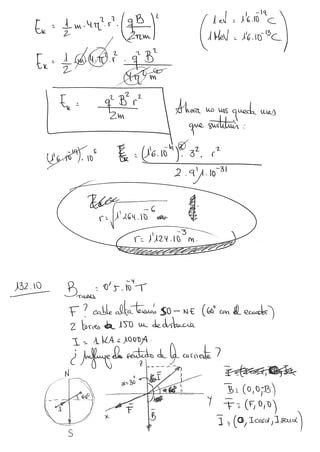 E_k = 1/2 m · 4π² · r² · (qB / 2πm)²
(1 eV = 1'6·10^-19 C
1 MeV = 1'6·10^-13 C)
E_k = 1/2 m · 4π² · r² · q² B² / 4π² m²
E_k = q² B² r² / 2m
Ahora no nos queda más
que sustituir:
(1'6·10^-19) · 10^6 = (1'6·10^-19)² · 3² · r² / 2 · 9'1·10^-31
r = √1'264·10^-6 m
r = 1'124·10^-3 m.
132.10 B = 0'5·10^-4 T
F? cable alta tensión SO - NE (60° con el ecuador)
2 torres a 150 m de distancia
I = 1 kA = 1000 A
¿influye el sentido de la corriente?
N
S
I
60°
z
α=30°
x
y
F
B
B = (0,0,-B)
F = (F,0,0)
I = (0, I cosα, I senα)